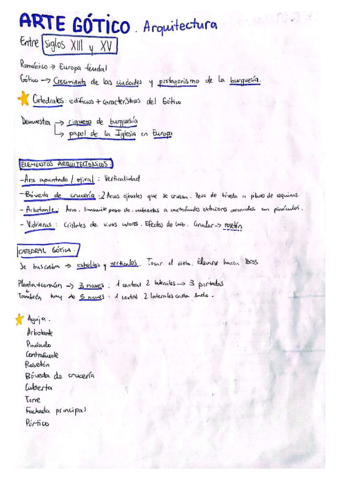 ARTE GÓTICO. Arquitectura
Entre siglos XIII y XV
Románico → Europa feudal
Gótico → Crecimiento de las ciudades y protagonismo de la burguesía.
Catedrales: edificios + característicos del Gótico
Demuestra → riqueza de burguesía
→ papel de la Iglesia en Europa
ELEMENTOS ARQUITECTÓNICOS
- Arco apuntado / ojival: Verticalidad
- Bóveda de crucería: 2 Arcos ojivales que se cruzan. Peso de bóveda a pilares de esquinas.
- Arbotante: Arco. transmite peso de cubiertas a contrafuertes exteriores coronados en pináculos.
- Vidrieras: Cristales de vivos colores. Efectos de luz. Circular → rosetón
CATEDRAL GÓTICA
Se buscaba → esbeltos y verticales. Tocar el cielo. Elevarse hacia Dios
Planta + común → 3 naves: 1 central 2 laterales → 3 portadas
También hay de 5 naves: 1 central 2 laterales cada lado.
Aguja.
Arbotante
Pináculo
Contrafuerte
Rosetón
Bóveda de crucería
Cubierta
Torre
Fachada principal
Pórtico